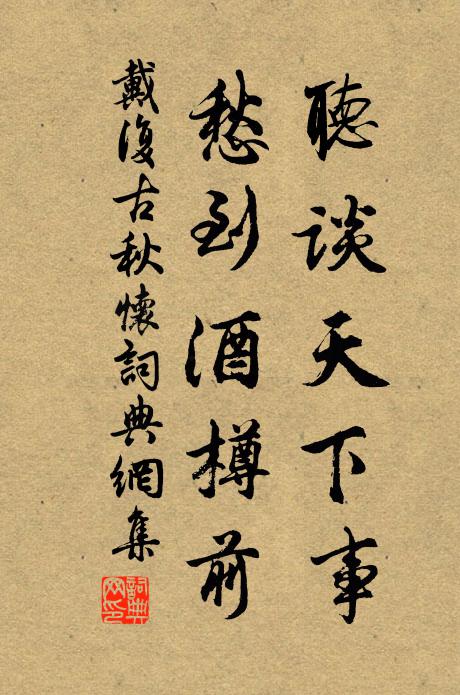 聽談天下事
愁到酒樽前
戴復古秋懷詞典網集
詞典网印